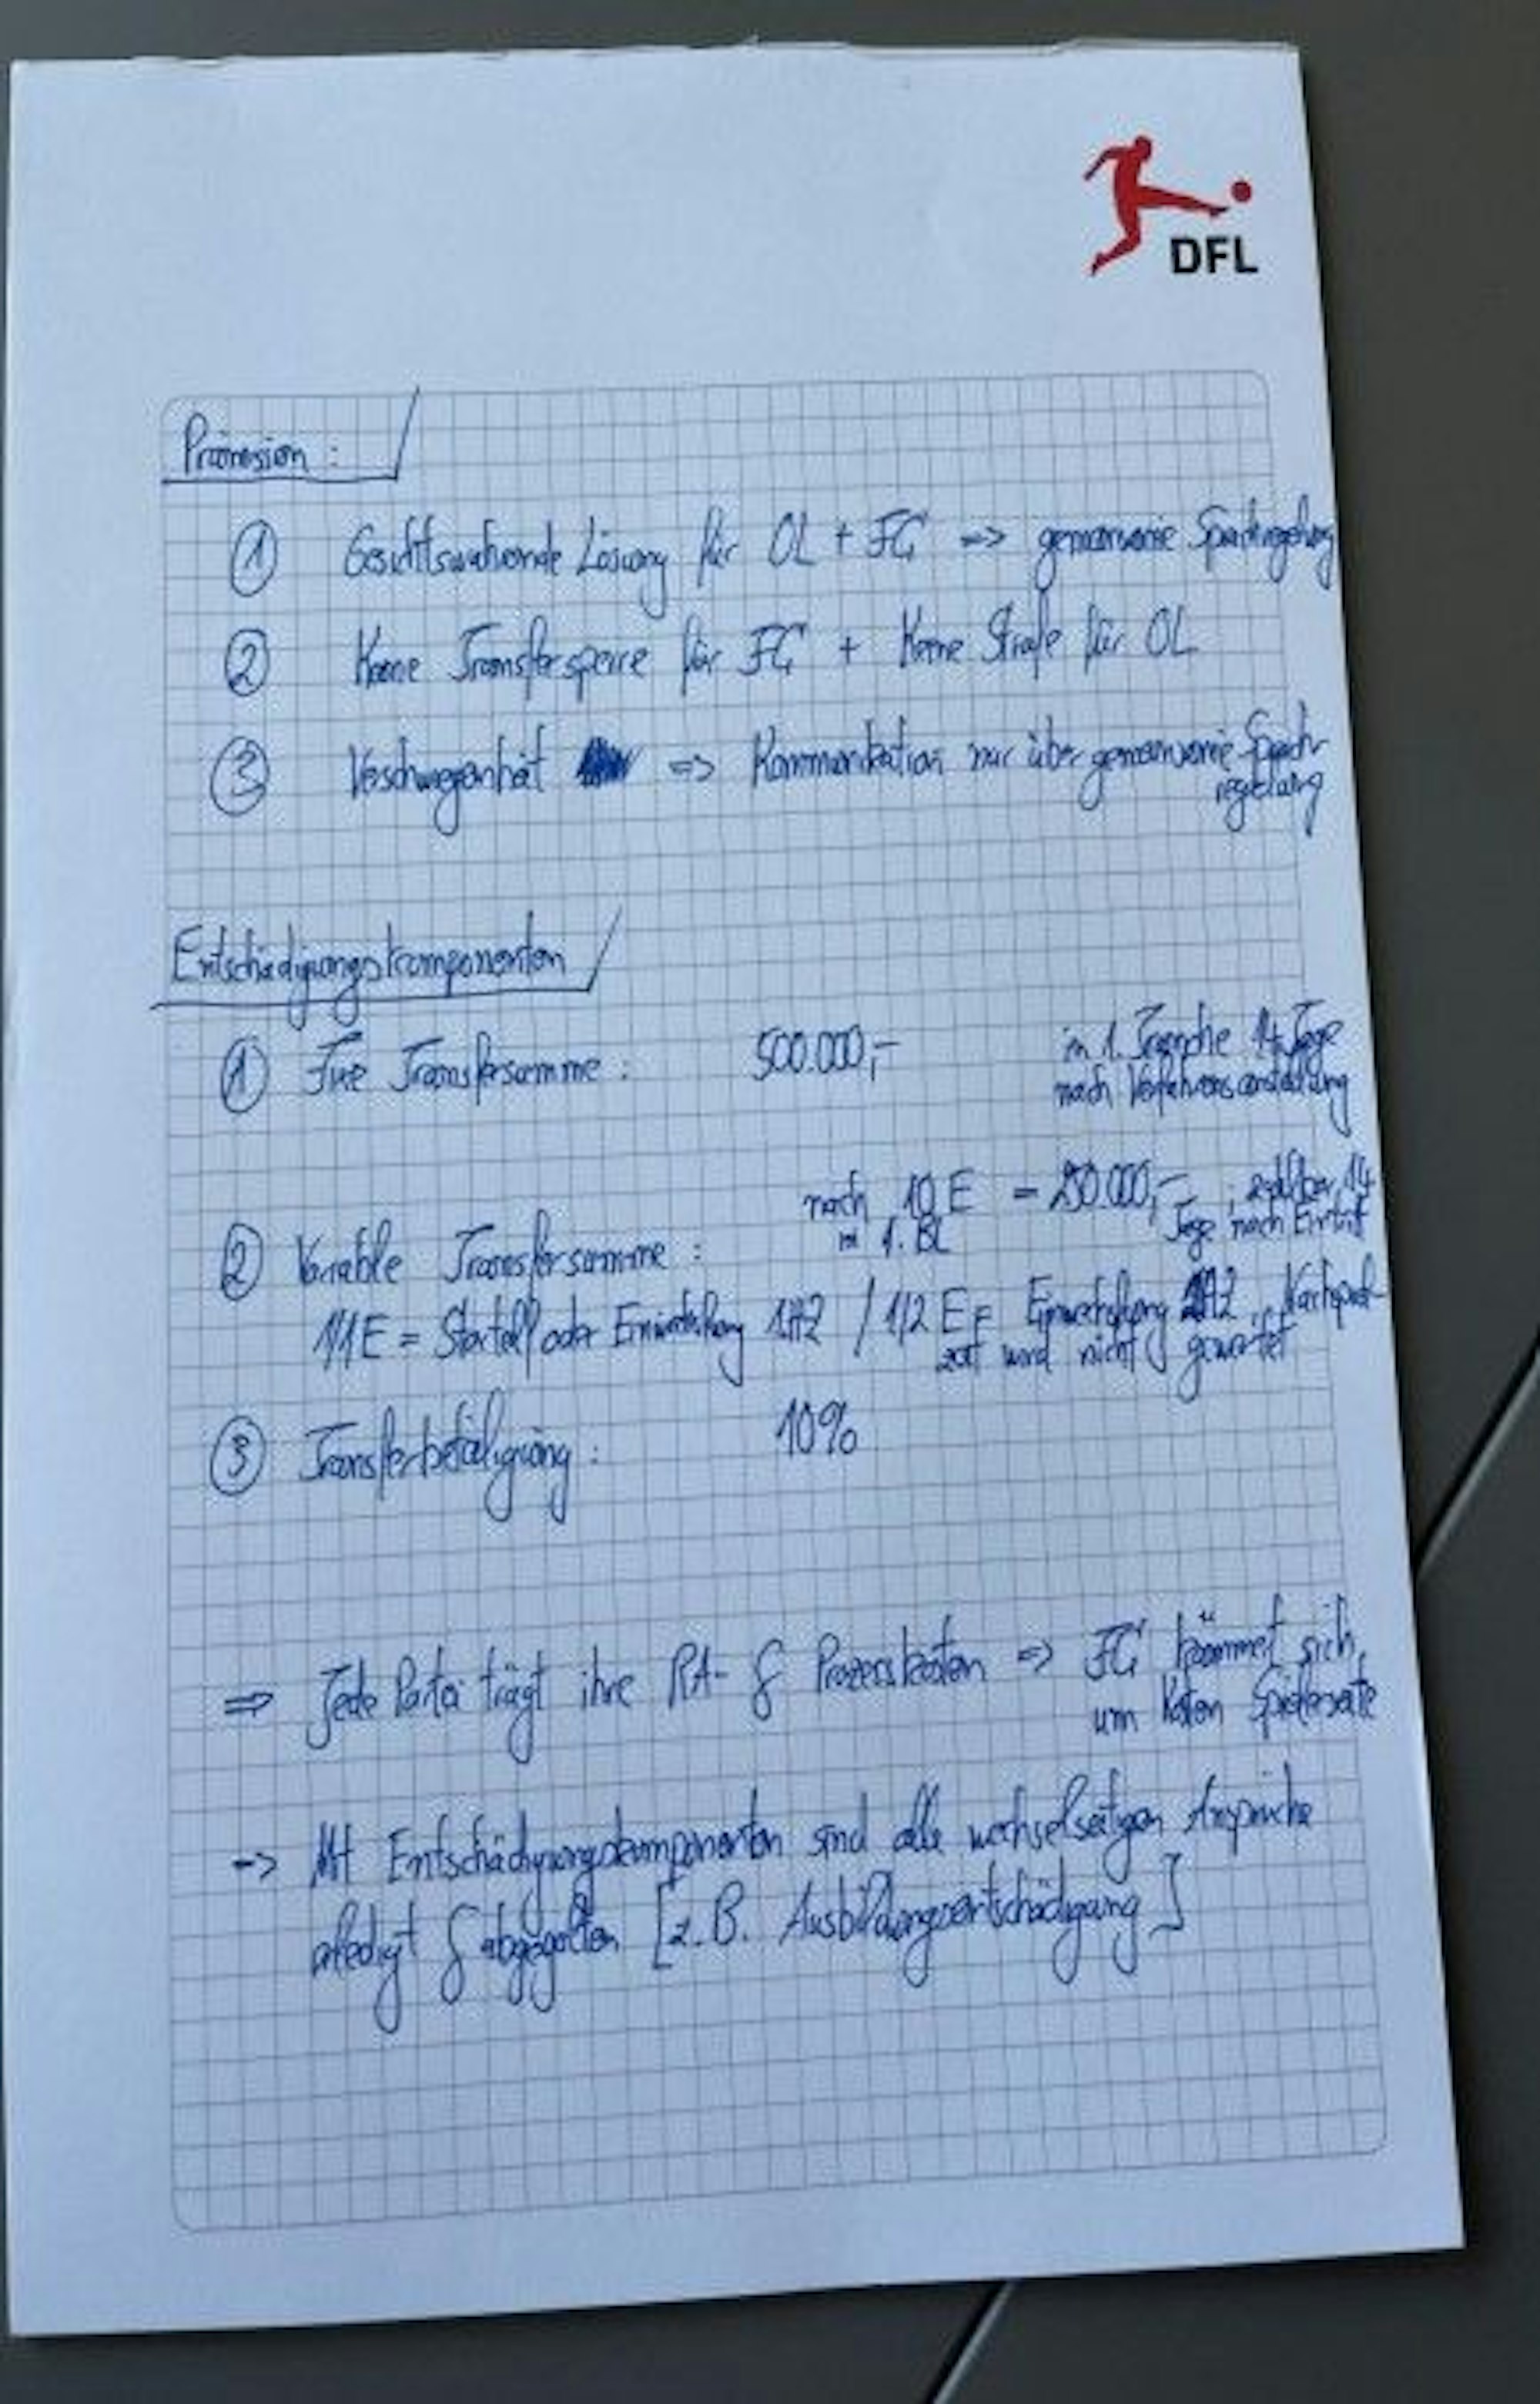 DFL
Prämission :
① Gesichtswahrende Lösung für OL + FC => gemeinsame Sprachregelung
② Keine Transfersperre für FC + Keine Strafe für OL
③ Verschwiegenheit => Kommunikation nur über gemeinsame Sprach-
regelung
Entschädigungskomponenten
① Fixe Transfersumme : 500.000,- in 1. Tranche 14 Tage
nach Verfahrenseinstellung
nach 10 E = 250.000,- ; zahlbar 14
in 1. BL Tage nach Eintritt
② Variable Transfersumme :
1/1 E = Startelf oder Einwechslung 1HZ / 1/2 E = Einwechslung 2HZ, Nachspiel-
zeit wird nicht gewertet
③ Transferbeteiligung : 10%
=> Jede Partei trägt ihre RA- & Prozesskosten => FC kümmert sich
um Kosten Spielerseite
=> Mit Entschädigungskomponenten sind alle wechselseitigen Ansprüche
erledigt & abgegolten [z.B. Ausbildungsentschädigung]